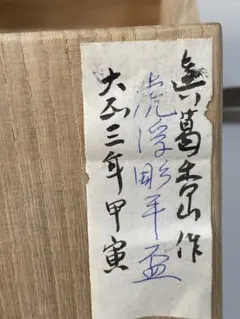 眞葛香山作
虎浮彫平盃
大正三年甲寅